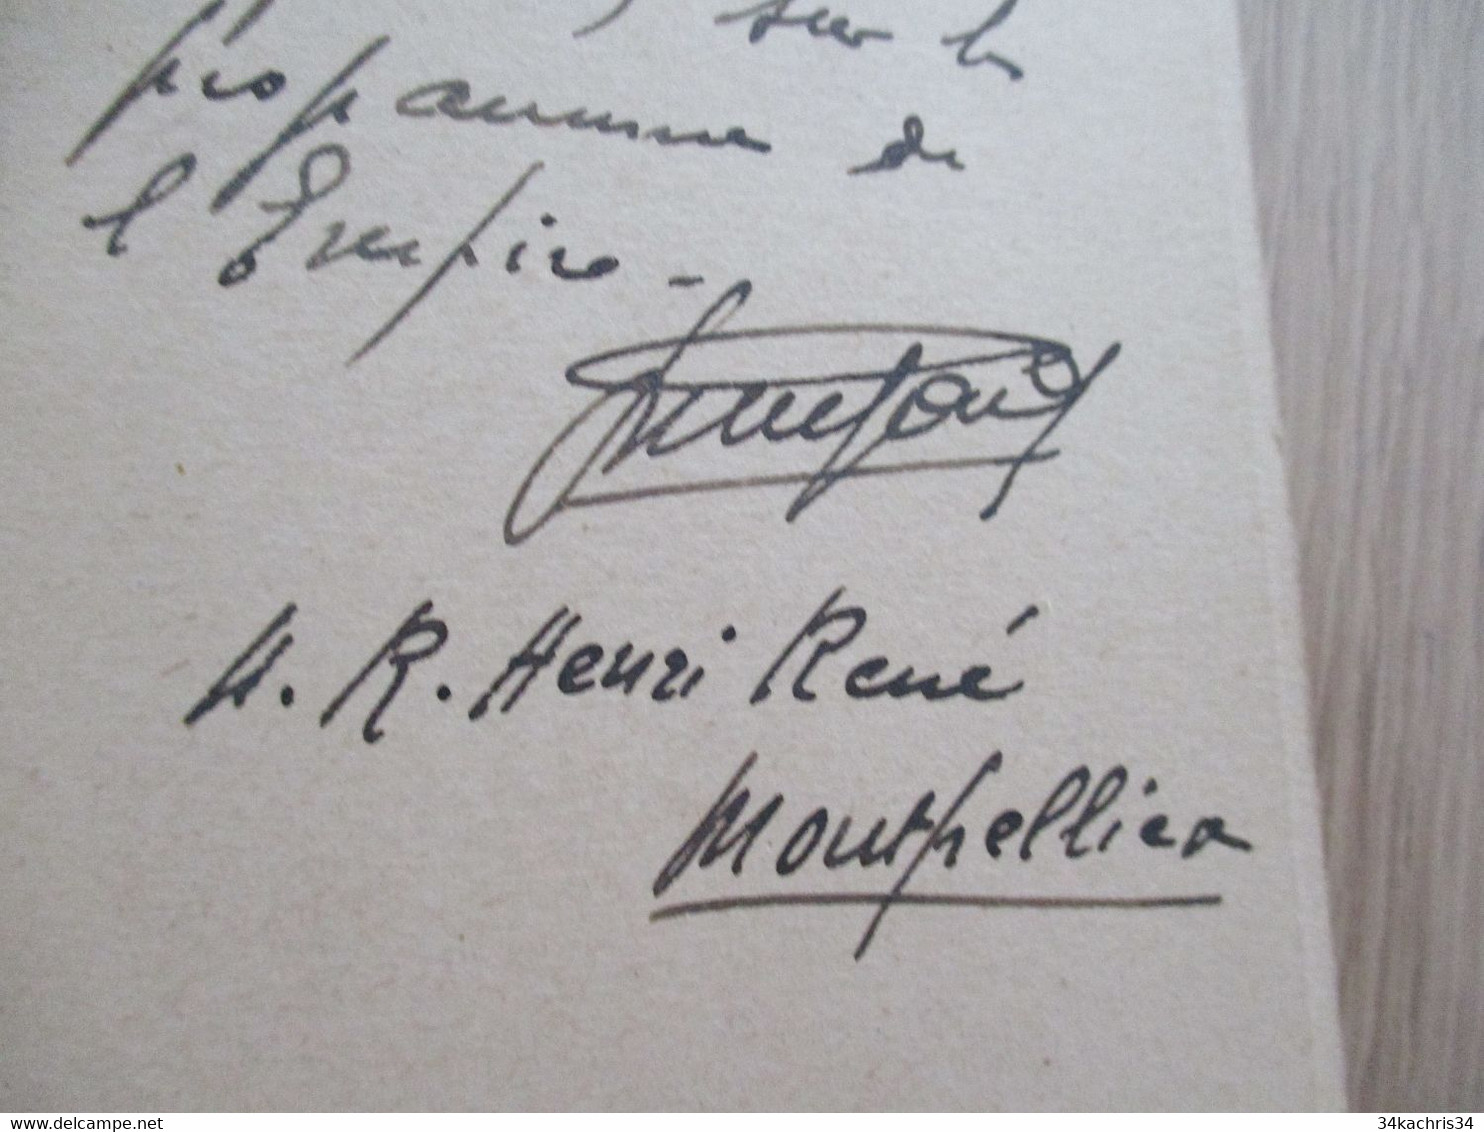 sur le
programme de
l'Empire -
H. R. Henri René
Montpellier
www.delcampe.net
34kachris34